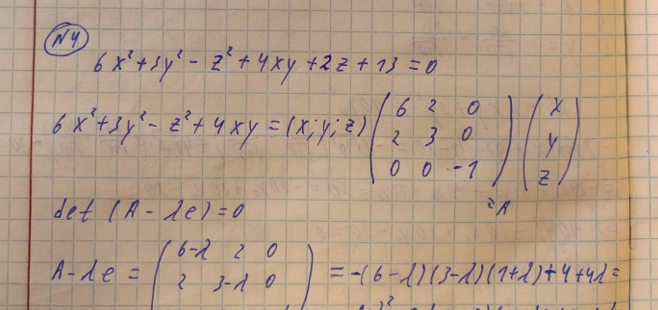 N4
6x² + 3y² - z² + 4xy + 2z + 13 = 0
6x² + 3y² - z² + 4xy = (x; y; z) ( 6 2 0 ) ( x )
2 3 0 y
0 0 -1 z
= A
det (A - λe) = 0
A - λe = ( 6-λ 2 0 ) = -(6-λ)(3-λ)(1+λ) + 4 + 4λ =
2 3-λ 0